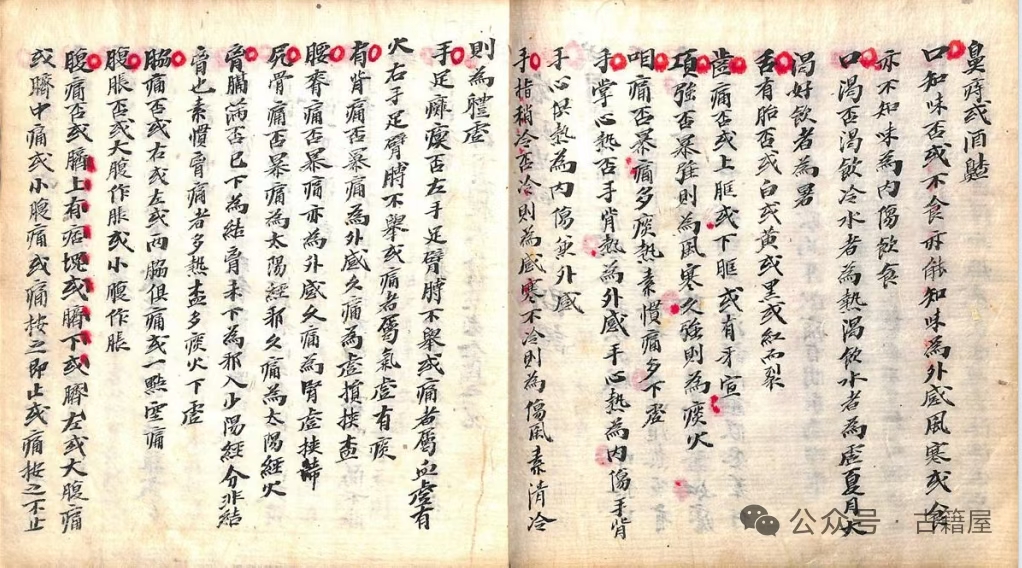 鼻痔或酒齄
口知味否或不食亦能知味為外感風寒或食
亦不知味為內傷飲食
口渴否渴飲冷水者為熱渴飲水者為虛夏月大
渴好飲者為暑
舌有胎否或白或黃或黑或紅而裂
齒痛否或上眶或下眶或有牙宣
項強否暴強則為風寒久強則為痰火
咽痛否暴痛多痰熱素慣痛多下虛
手掌心熱否手背熱為外感手心熱為內傷手背
手心俱熱為內傷兼外感
手指稍冷否冷則為感寒不冷則為傷風素清冷
則為體虛
手足麻瘓否左手足臂膊不舉或痛者屬血虛有
火右手足臂膊不舉或痛者屬氣虛有痰
有背痛否暴痛為外感久痛為虛損挾
腰脊痛否暴痛亦為外感久痛為腎虛挾
尻骨痛否暴痛為太陽經邪久痛為太陽經火
胷膈滿否已下為結胷未下為邪入少陽經分非結
胷也素慣胷痛者多熱盍多痰火下虛
脇痛否或右或左或兩脇俱痛或一點空痛
腹脹否或大腹作脹或小腹作脹
腹痛否或臍上有痞塊或臍下或臍左或大腹痛
或臍中痛或小腹痛或痛按之即止或痛按之不止
公众号 古籍屋